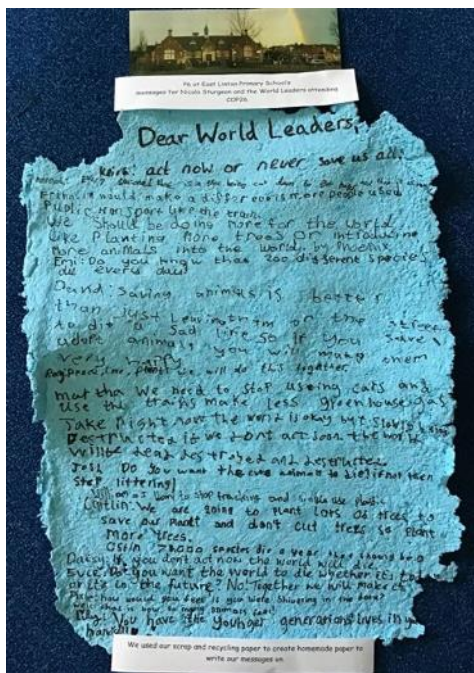 P6 at East Linton Primary School's
messages for Nicola Sturgeon and the World Leaders attending
COP26.
Dear World Leaders,
Keira: act now or never save us all!
would make a difference is more people used
Public transport like the train.
We should be doing more for the world
like Planting more trees or introducing
more animals into the world. by Phoenix
Emi: Do you know that 200 different species
die every day?
David: Saving animals is better
than Just Leaving them on the street
to die a Sad life so if you save
adopt animals you will make them
very happy
we will do this together
martha We need to stop using cars and
use the trains make less greenhouse gas
Jake Right now the world is okay but slowly being
Destructed if we dont act soon the world
will be dead destroyed and destructed
Josh Do you want the animals to die if not then
Stop littering!
to stop fracking and single use plastic
Caitlin: We are going to plant lots of trees to
save our planet and don't cut trees so plant
more trees.
species die a year that should be 0
Daisy: If you don't act now the world will die.
Do you want the world to die whether it's
or it's in the future? No! Together we will make
how would you feel if you were
that is how so many animals feel!
You have the younger generations lives in your
hands!
We used our scrap and recycling paper to create homemade paper to
write our messages on.